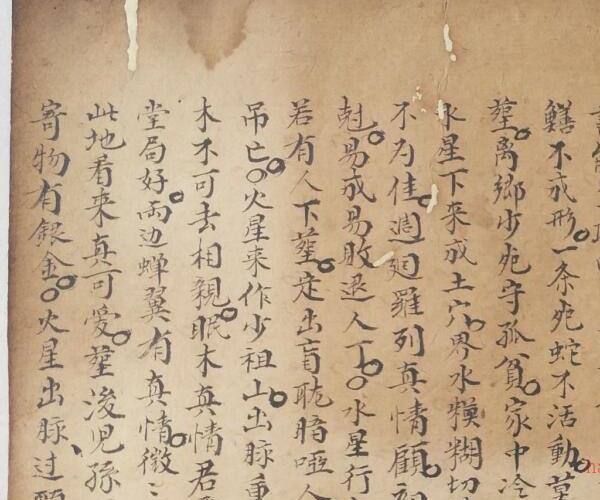 鱔不成形。一条死蛇不活動。莫
塟。离鄉少死守孤貧。家中冷
水星下来成土穴。界水糢糊切
不为佳。週廻羅列真情顧。
尅。易成易敗退人丁。〇水星行
若有人下塟。定出盲聋暗啞人
吊亡。〇火星来作少祖山。出脉重
木不可去相親。眠木真情君
堂局好。両边蝉翼有真情。微〻
此地看来真可愛。塟後児孫
寄物有銀金。〇火星出脉、过